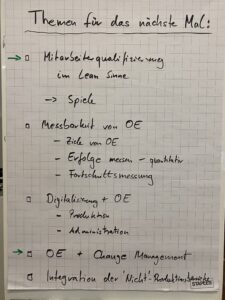 Themen für das nächste Mal:
→ □ Mitarbeiterqualifizierung
im Lean Sinne
→ Spiele
□ Messbarkeit von OE
- Ziele von OE
- Erfolge messen - quantitativ
- Fortschrittsmessung
□ Digitalisierung + OE
- Produktion
- Administration
→ □ OE + Change Management
□ Integration der 'Nicht'-Produktionsbereiche
STAPLES